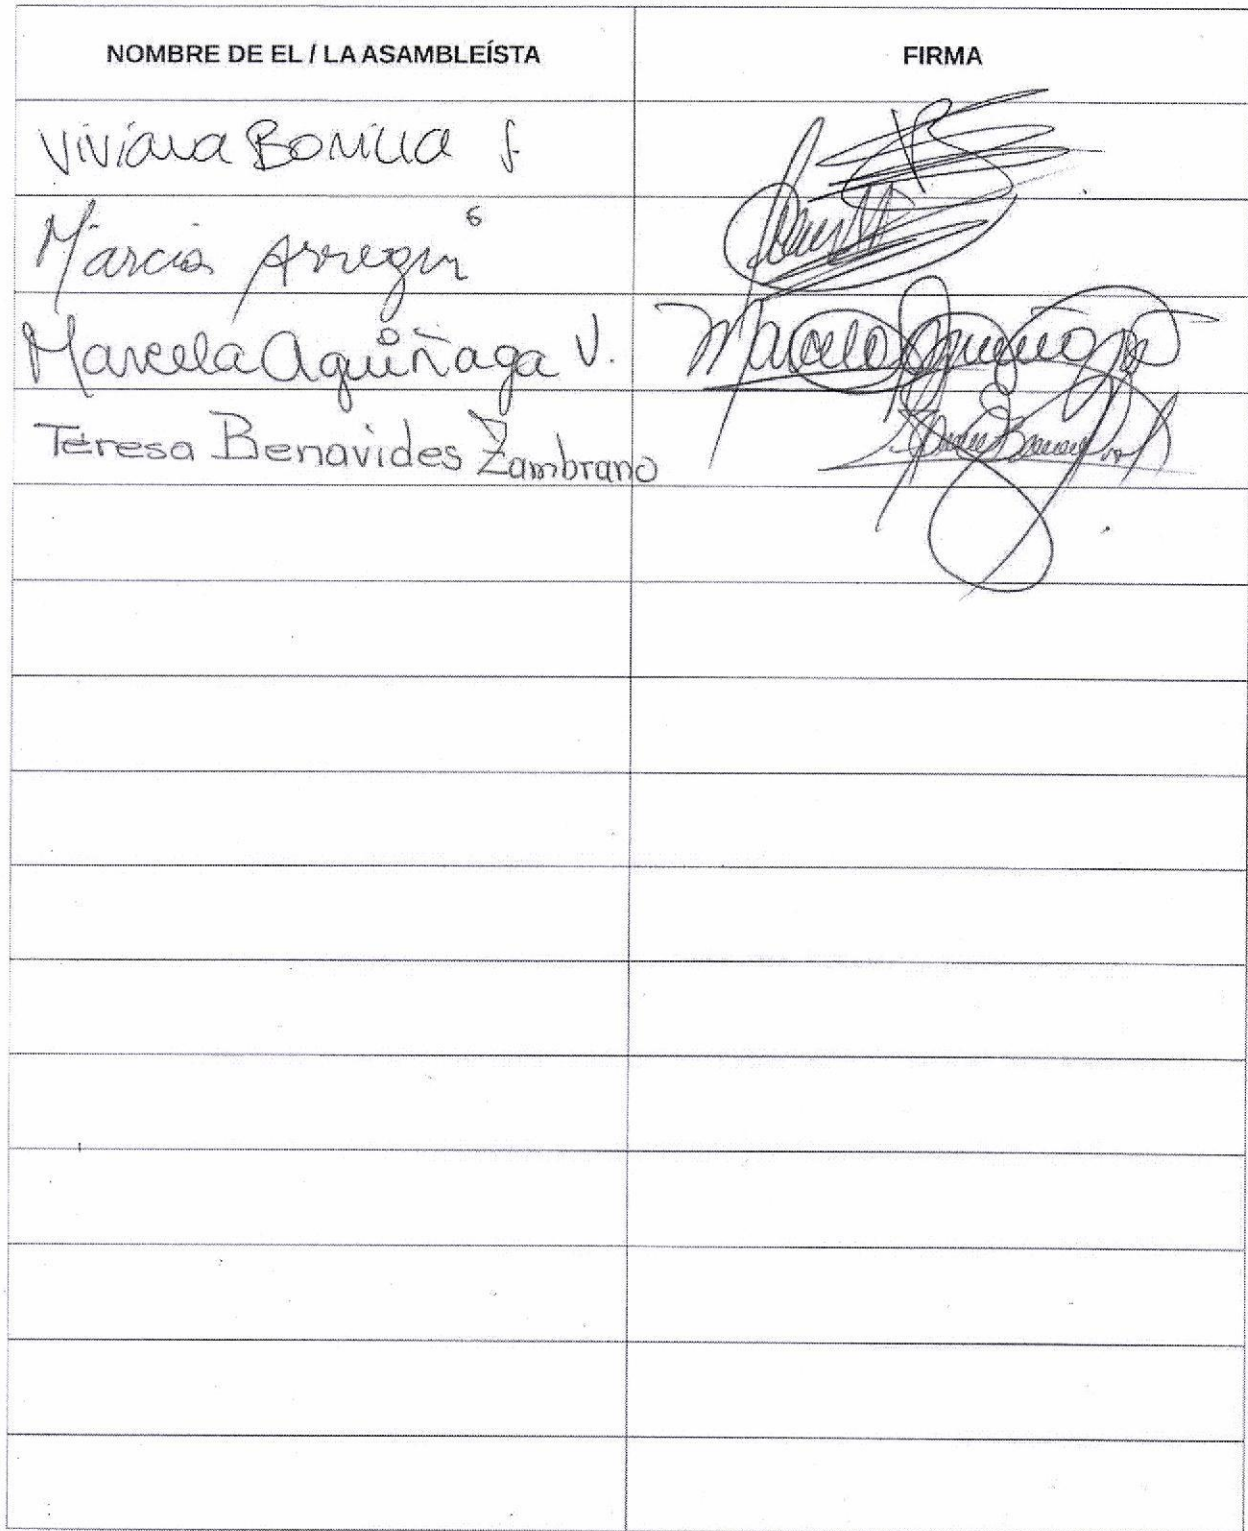 NOMBRE DE EL / LA ASAMBLEÍSTA FIRMA
Viviana Bonilla S.
Marcia Arregui
Marcela Aguiñaga V. Marcela Aguiñaga
Teresa Benavides Zambrano